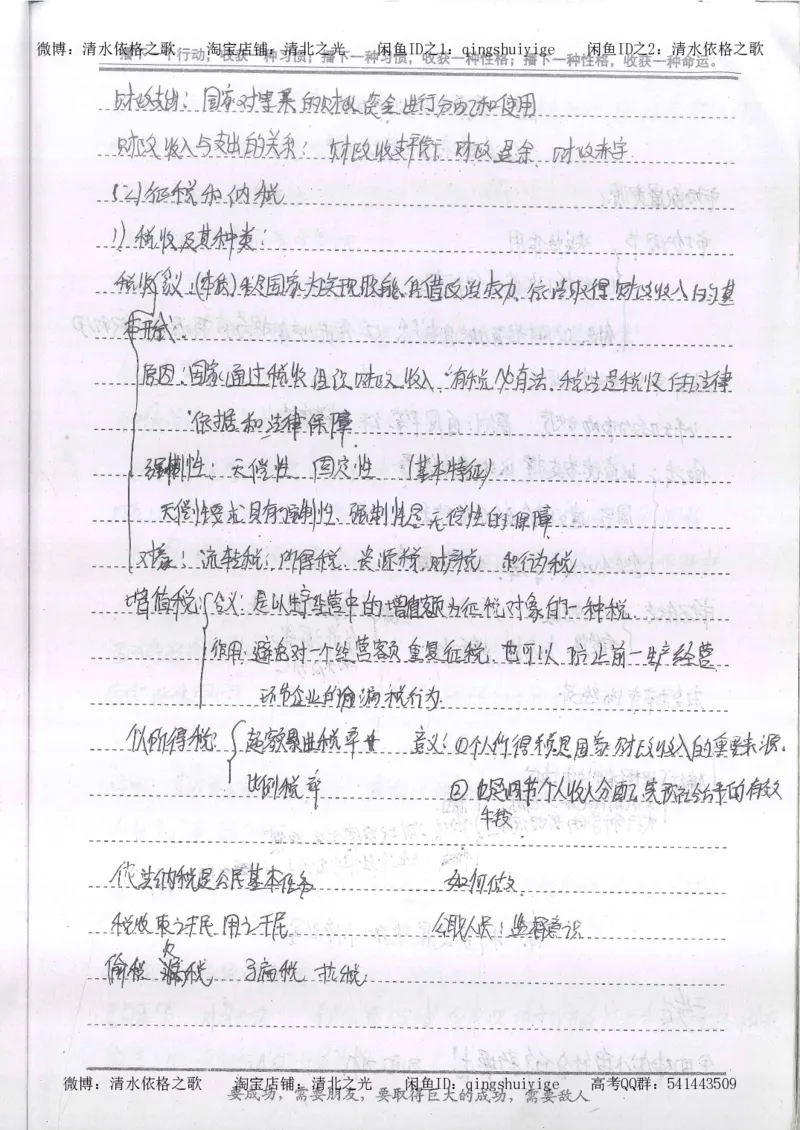 微博：清水依格之歌 淘宝店铺：清北之光 闲鱼ID之1：qingshuiyige 闲鱼ID之2：清水依格之歌
播下一个行动，收获一种习惯；播下一种习惯，收获一种性格；播下一种性格，收获一种命运。
财政支出：国家对集中的财政资金进行分配和使用
财政收入与支出的关系：财政收支平衡 财政盈余 财政赤字
(2)征税和纳税
1)税收及其种类：
税收含义：(本质)税是国家为实现职能，凭借政治权力，依法取得财政收入的基
本形式。
原因：国家通过税收组织财政收入，"有税必有法，税法是税收的法律
依据和法律保障
强制性：无偿性 固定性 (基本特征)
无偿性要求具有强制性，强制性是无偿性的保障
对象：流转税，所得税，资源税，财产税，和行为税
增值税 含义：是以生产经营中的增值额为征税对象的一种税
作用：避免对一个经营额重复征税，也可以防止前一生产经营
环节企业的偷漏税行为
个人所得税 超额累进税率 意义：①个人所得税是国家财政收入的重要来源，
比例税率 ②也是调节个人收入分配，实现社会公平的有效
手段
依法纳税是公民基本义务 如何做
税收取之于民 用之于民 公民 ：监督意识
偷税 欠税 骗税 抗税
微博：清水依格之歌 淘宝店铺：清北之光 闲鱼ID：qingshuiyige 高考QQ群：541443509
要成功，需要朋友，要取得巨大的成功，需要敌人